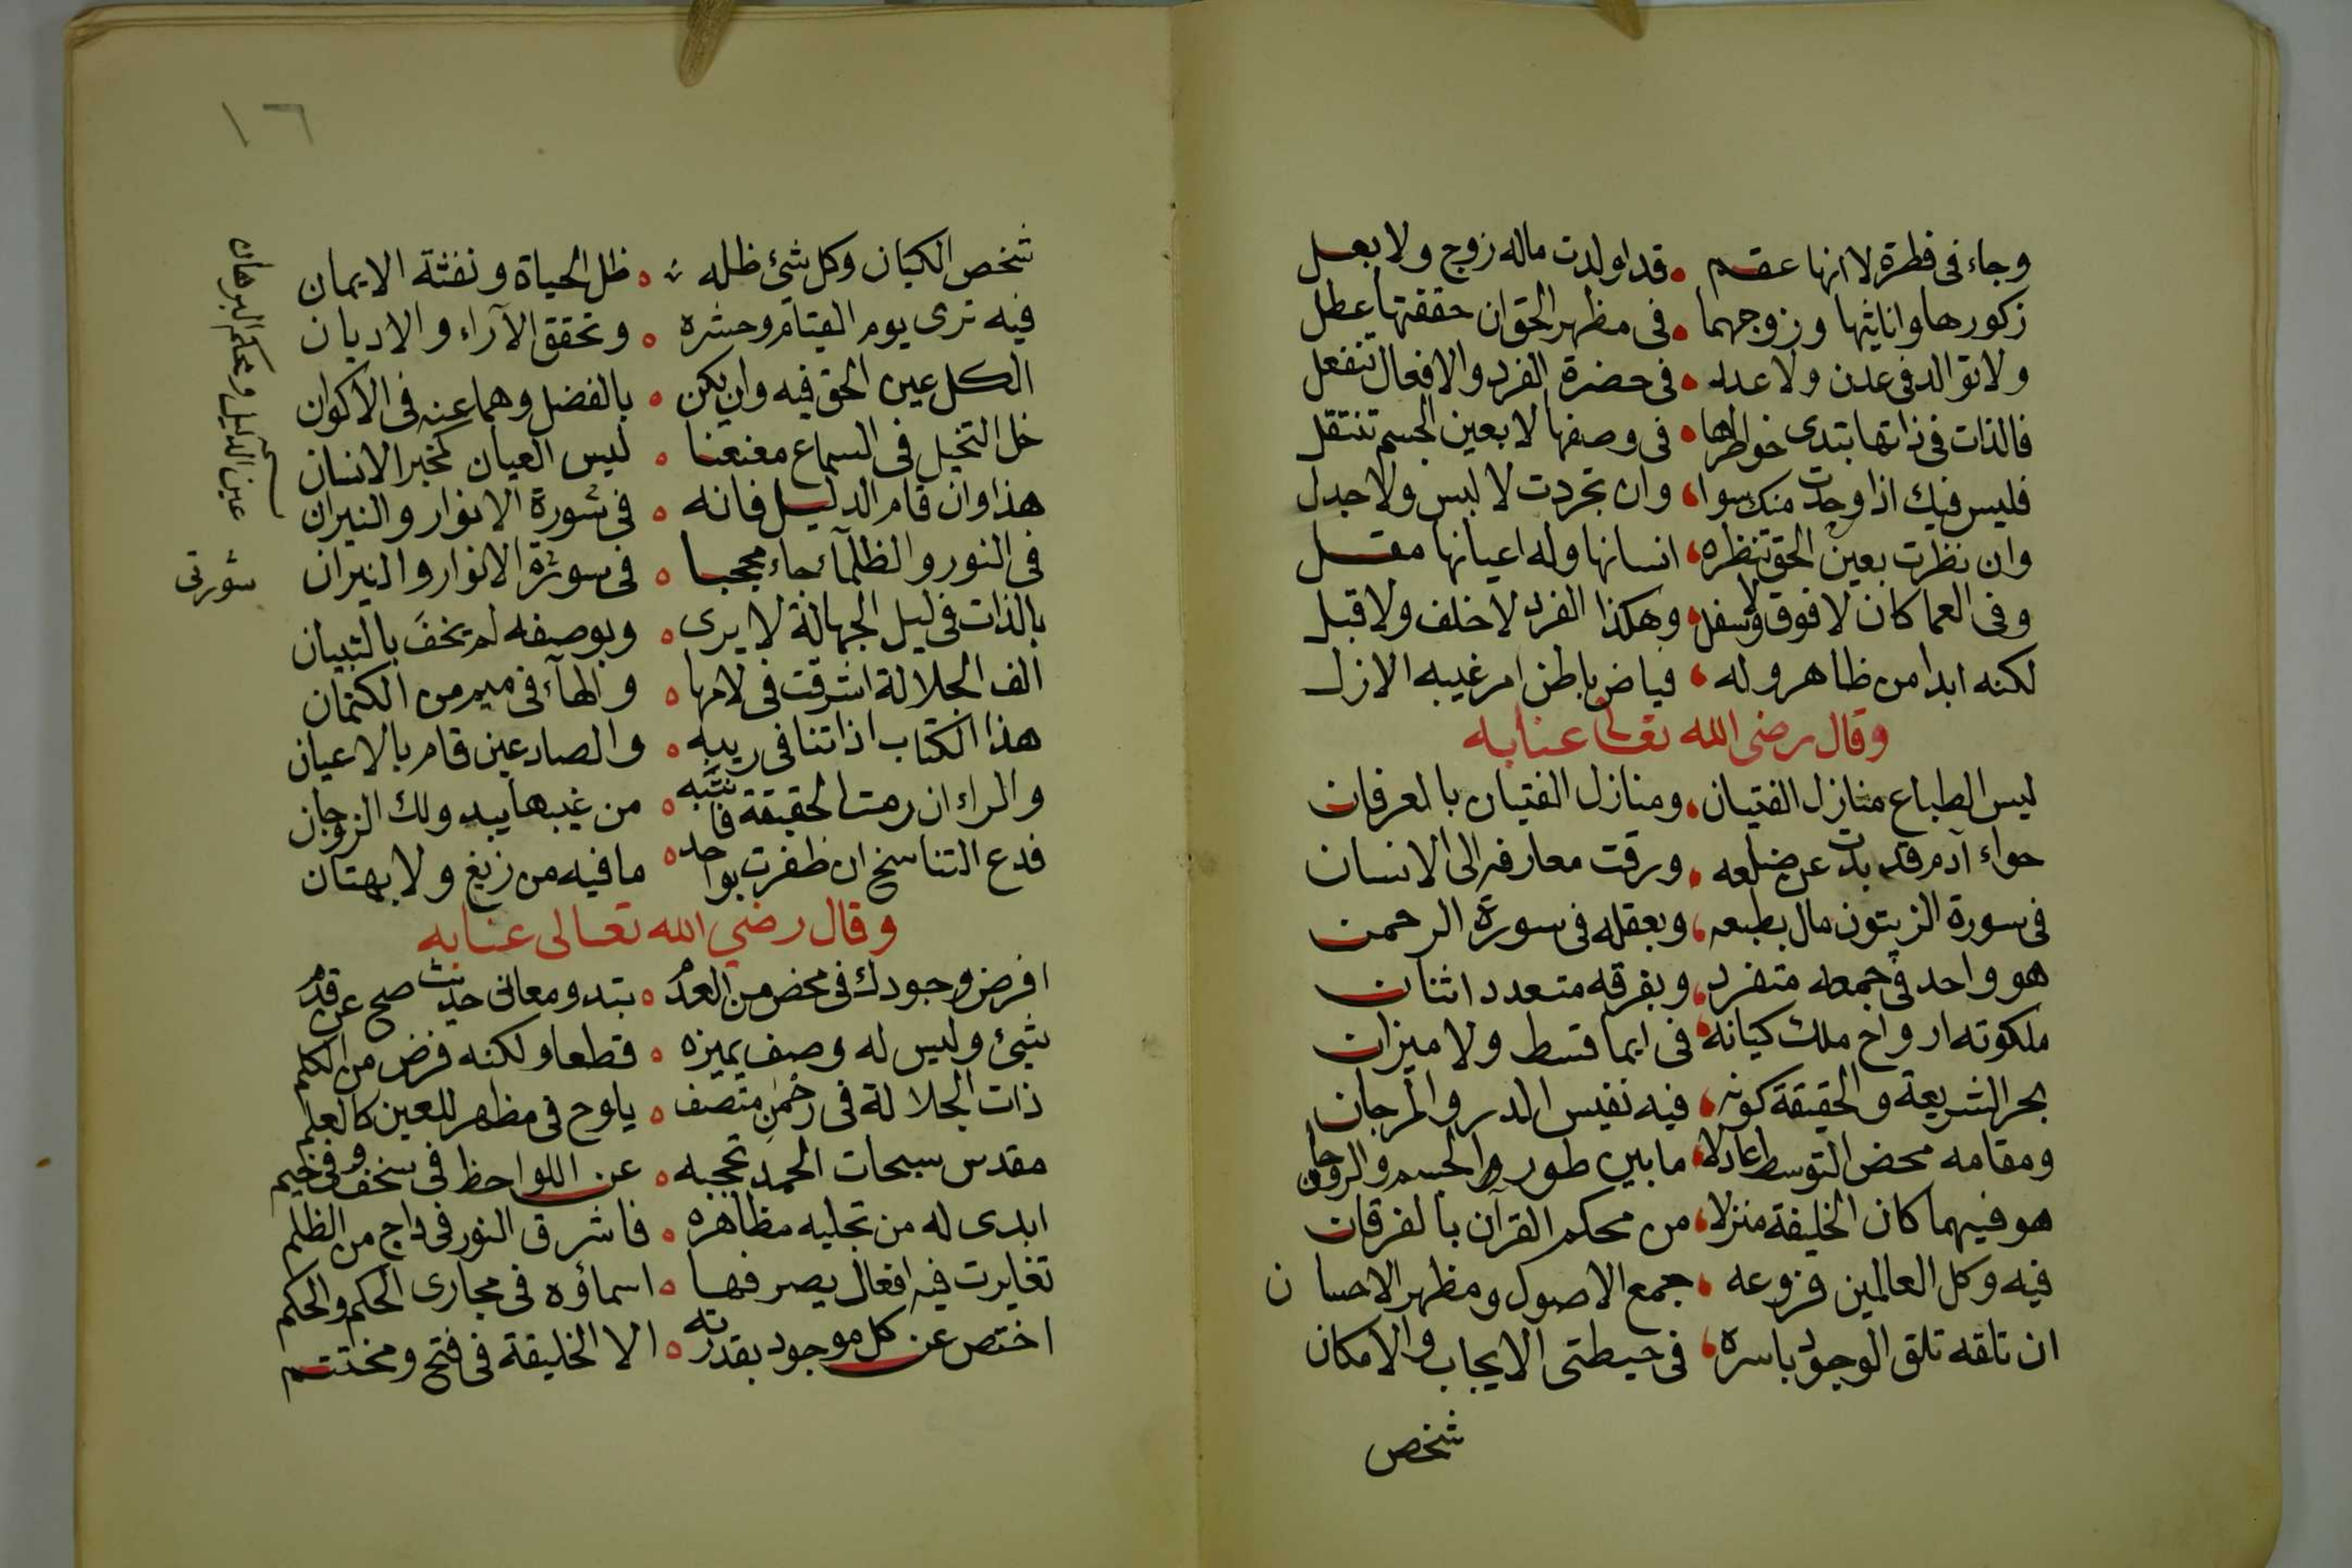 وجاء فى فطرة لا انها عقم • قد اولدت ماله زوج ولا بعل
زكورها واناثها وزوجهما • فى مظهر الحق ان حققتها عطل
ولا توالد فى عدن ولا عدد • فى حضرة الفرد والافعال تنفعل
فالذات فى ذاتها بتدى خواطرها • فى وصفها لا بعين الجسم تنتقل
فليس فيك اذا وحدت منك سوا، وان تجردت لا لبس ولا جدل
وان نظرت بعين الحق تنظره، انسانها وله اعيانها مقل
وفى العما كان لا فوق ولا سفل، وهكذا الفرد لا خلف ولا قبل
لكنه ابدا من ظاهر وله، فياض باطن امر غيبه الازل
وقال رضى الله تعالى عنا به
ليس الطباع منازل الفتيان، ومنازل الفتيان بالعرفان
حواء آدم قد بدت عن ضلعه، ورقت معارفه الى الانسان
فى سورة الزيتون مال بطبعه، وبعقله فى سورة الرحمن
هو واحد فى جمعه متفرد، وبفرقه متعدد اثنان
ملكوته ارواح ملك كيانه، فى ايما قسط ولا ميزان
بحر الشريعة والحقيقة كونه، فيه نفيس الدر والمرجان
ومقامه محض التوسط عادلا، ما بين طور الجسم والروحان
هو فيهما كان الخليفة منزلا، من محكم القرآن بالفرقان
فيه وكل العالمين فروعه، جمع الاصول ومظهر الاحسان
ان تلقه تلق الوجود باسره، فى حيطتى الايجاب والامكان
شخص
١٦
شخص الكيان وكل شئ ظله • ظل الحياة ونفثة الايمان
فيه ترى يوم القيام وحشره • وتحقق الآراء والاديان
الكل عين الحق فيه وان يكن • بالفضل وهما عنه فى الاكوان
خل التخيل فى السماع معنعنا • ليس العيان كخبر الانسان
هذا وان قام الدليل فانه • فى شورة الانوار والنيران
فى النور والظلمآء جاء محجبا • فى سورة الانوار والنيران
بالذات فى ليل الجهالة لا يرى • وبوصفه لم يخف بالتبيان
الف الجلالة اشرقت فى لامها • والهآء فى ميم من الكتمان
هذا الكتاب اذا تنافى ريبه • والصاد عين قام بالاعيان
والراء ان رمت الحقيقة فانتبه • من غيبها يبدو لك الزوجان
فدع التناسخ ان ظفرت بواحد • ما فيه من زيغ ولا بهتان
وقال رضي الله تعالى عنا به
افرض وجودك فى محض من العدم • بتدو معانى حديث صح عن قدم
شئ وليس له وصف يميزه • قطعا ولكنه فرض من الكلم
ذات الجلالة فى رحمن متصف • يلوح فى مظهر للعين كالعلم
مقدس سبحات الحمد تحجبه • عن اللواحظ فى سخف وفى خيم
ابدى له من تجليه مظاهره • فاشرق النور فى داج من الظلم
تغايرت فيه افعال يصرفها • اسماؤه فى مجارى الحكم والحكم
اختص عن كل موجود بقدرته • الا الخليقة فى فتح ومختتم
عين الدليل ومحكم البرهان
شورتى